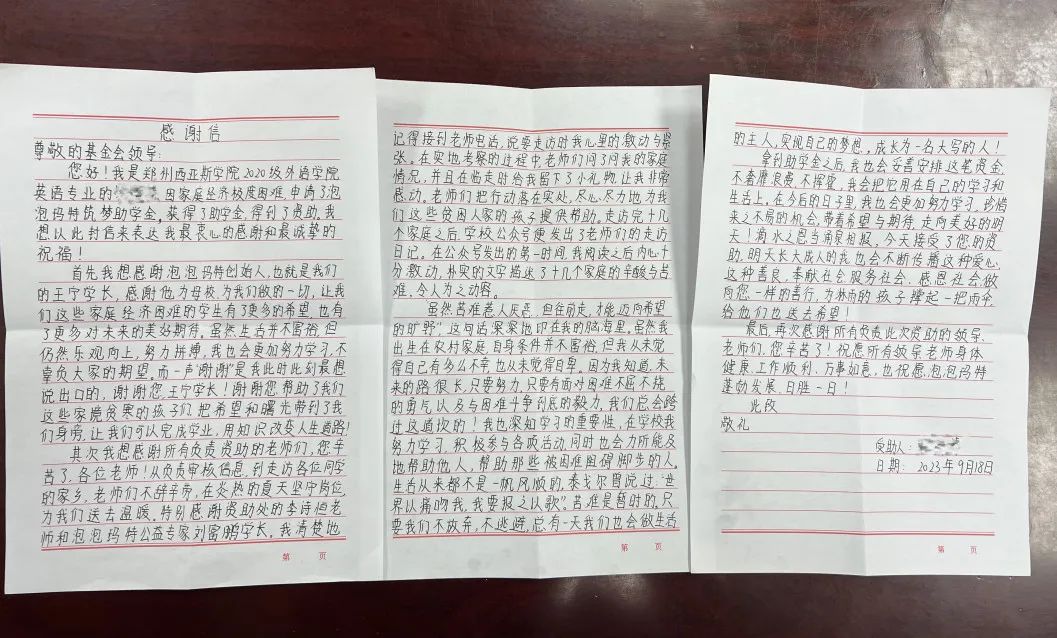 感谢信
尊敬的基金会领导：
您好！我是郑州西亚斯学院2020级外语学院
英语专业的 因家庭经济极度困难，申请了泡
泡玛特筑梦助学金。获得了助学金，得到了资助，我
想以此封信来表达我最衷心的感谢和最诚挚的
祝福！
首先我想感谢泡泡玛特创始人，也就是我们
的王宁学长，感谢他为母校，为我们做的一切，让我
们这些家庭经济困难的学生有了更多的希望，也有
了更多对未来的美好期待。虽然生活并不富裕，但
仍然乐观向上，努力拼搏，我也会更加努力学习，不
辜负大家的期望。而一声"谢谢"是我此时此刻最想
说出口的，谢谢您，王宁学长！谢谢您帮助了我们
这些家境贫寒的孩子们，把希望和曙光带到了我
们身旁，让我们可以完成学业，用知识改变人生道路！
其次我想感谢所有负责资助的老师们，您辛
苦了，各位老师！从负责审核信息，到走访各位同学
的家乡，老师们不辞辛劳，在炎热的夏天坚守岗位，
为我们送去温暖。特别感谢资助处的李诗 老
师和泡泡玛特公益专家刘富鹏学长。我清楚地
第 页
记得接到老师电话，说要走访时我心里的激动与紧
张。在实地考察的过程中，老师们问了问我的家庭
情况，并且在临走时给我留下了小礼物，让我非常
感动。老师们把行动落在实处，尽心尽力地为我
们这些贫困人家的孩子提供帮助。走访完十几
个家庭之后，学校公众号便发出了老师们的走访
日记。在公众号发出的第一时间，我阅读之后内心十
分激动，朴实的文字描述了十几个家庭的辛酸与苦
难，令人为之动容。
虽然苦难惹人厌恶，但往前走，才能迈向希望
的旷野"这句话深深地印在我的脑海里。虽然我
出生在农村家庭，自身条件并不富裕，但我从未觉
得自己有多么不幸，也从未觉得自卑。因为我知道，未
来的路很长，只要努力，只要有面对困难不屈不挠
的勇气，以及与困难斗争到底的毅力，我们总会跨
过这道坎的！我也深知学习的重要性，在学校我
努力学习，积极参与各项活动，同时也会力所能及
地帮助他人，帮助那些被困难阻碍脚步的人。
生活从来都不是一帆风顺的，泰戈尔曾说过："世
界以痛吻我，我要报之以歌"。苦难是暂时的，只
要我们不放弃，不逃避，总有一天我们也会做生活
第 页
的主人，实现自己的梦想，成长为一名大写的人！
拿到助学金之后，我也会妥善安排这笔资金，
不奢靡浪费，不挥霍，我会把它用在自己的学习和
生活上。在今后的日子里，我也会更加努力学习，珍惜
来之不易的机会，带着希望与期待，走向美好的明
天！滴水之恩当涌泉相报，今天接受了您的资
助，明天长大成人的我也会不断传播这种爱心，
这种善良，奉献社会，服务社会，感恩社会，做
向您一样的善行，为淋雨的孩子撑起一把雨伞，
给他们也送去希望！
最后，再次感谢所有负责此次资助的领导、
老师们，您辛苦了！祝愿所有领导老师身体
健康，工作顺利，万事如意，也祝愿泡泡玛特
蓬勃发展，日胜一日！
此致
敬礼
受助人：
日期：2023年9月18日
第 页